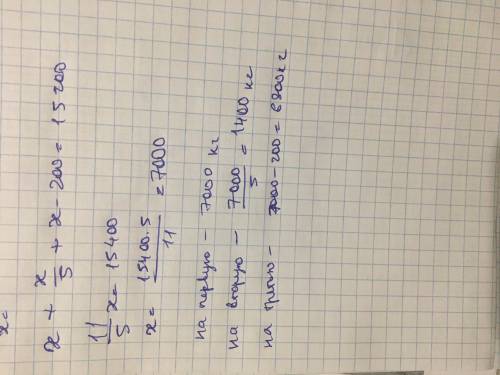 x=
x + x/5 + x - 200 = 15200
11/5 x = 15400
x = 15400·5/11 = 7000
на первую - 7000 кг
на вторую - 7000/5 = 1400 кг
на третью - 7000 - 200 = 6800 кг